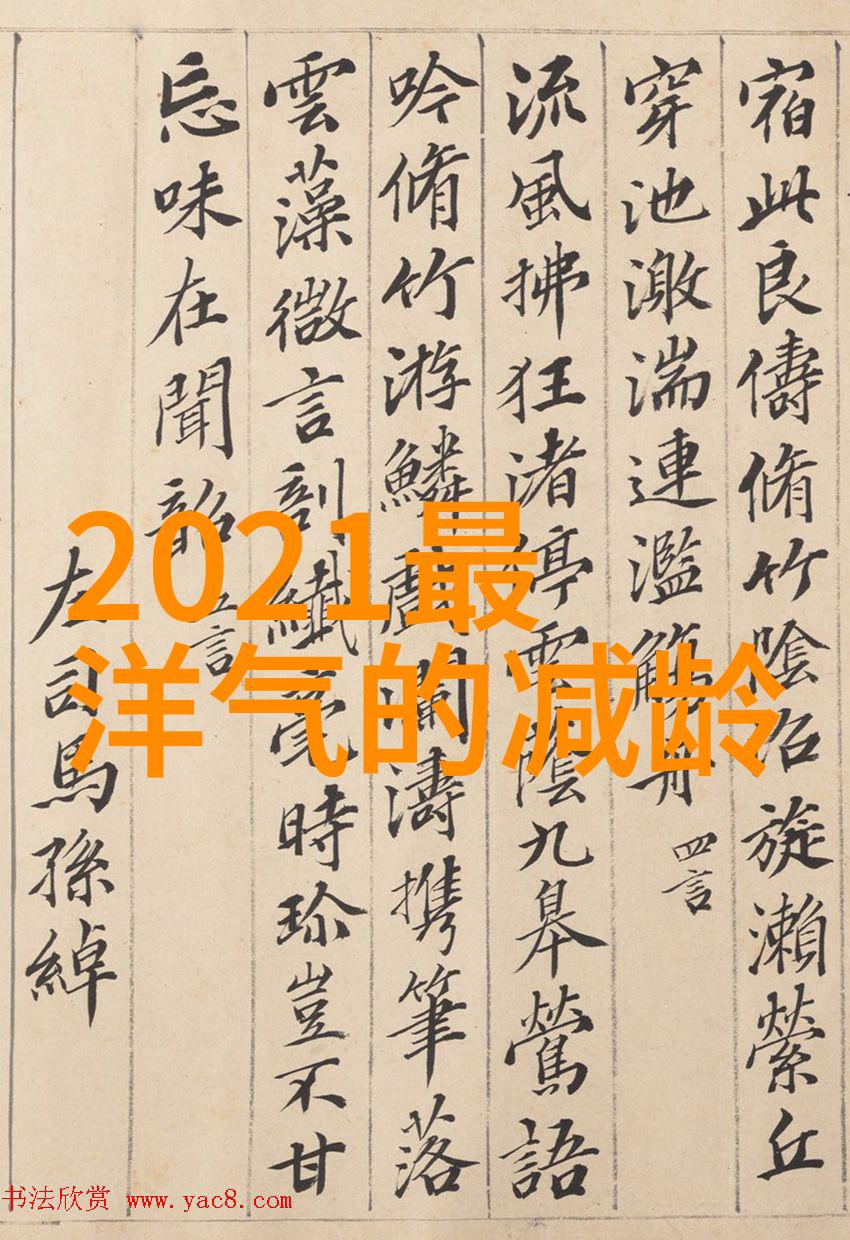 宿此良儔脩竹陰沼旋瀨縈丘
穿池激湍連濫觴舟 四言
流風拂狂渚停雲蔭九皋鶯語
吟脩竹游鱗戲瀾濤携筆落
雲藻微言剖纖毫時珍豈不甘
忘味在聞韶 五言
左司馬孫綽
2021最
洋气的减龄
书法欣赏 www.yac8.com